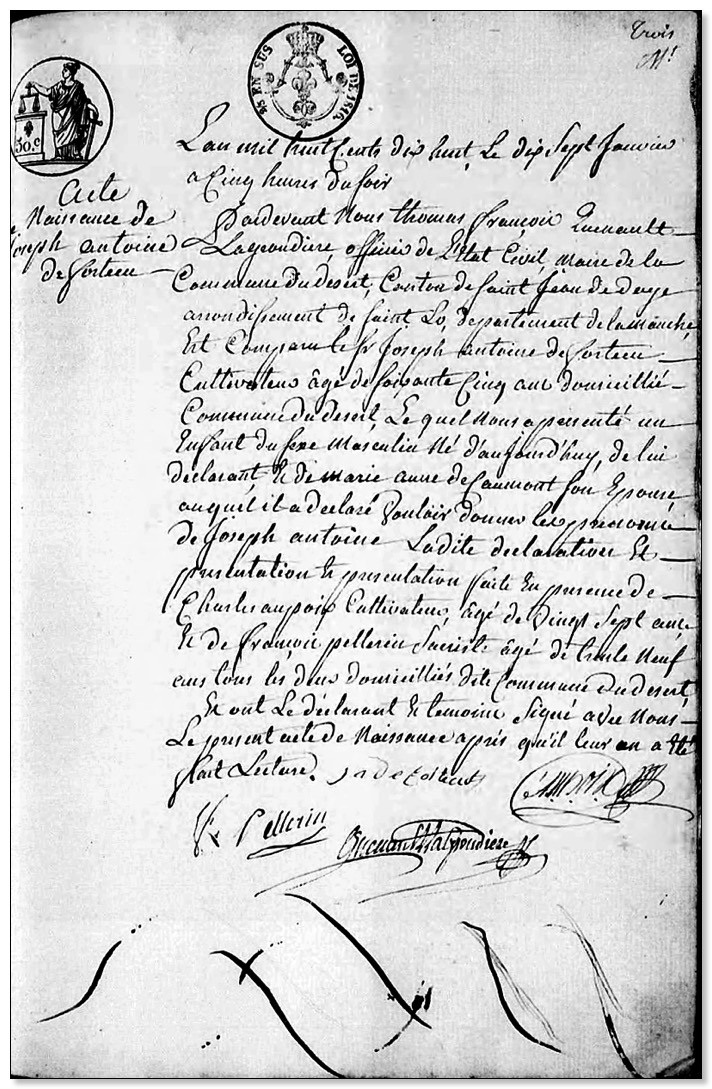 Trois
EN SUS LOI DE 1816
50.c
Acte
Naissance de
Joseph antoine
de Gorteeu
L'an mil huit Cents dix huit, Le dix Sept Janvier
a Cinq heures du Soir
Pardevant Nous thomas françois Quenault
Lagroudiere, officier de L'Etat Civil, Maire de la
Commune du desert, Canton de Saint Jean de daye
arrondissement de Saint Lo, departement de la manche,
Est Comparu le Sr Joseph antoine de Gorteeu
Cultivateur âgé de Soixante Cinq ans domicillié
Commune du desert, Le quel Nous a presenté un
Enfant du Sexe Masculin Né d'aujourd'huy, de lui
declarant, Et de Marie anne de Caumont Son Epouse
auquel il a declaré Vouloir donner les prenoms
de Joseph antoine Ladite declaration Et
presentation Et presentation faite En presence de
Charles aupoix Cultivateur, âgé de Vingt Sept ans,
Et de françois pellerin Sacriste âgé de trente Neuf
ans tous les deux domicilliés dite Commune du desert,
Et ont Le déclarant Et temoins Signé avec Nous
Le present acte de Naissance après qu'il leur en a Eté
fait Lecture.
Pellerin
Quenault Lagroudiere